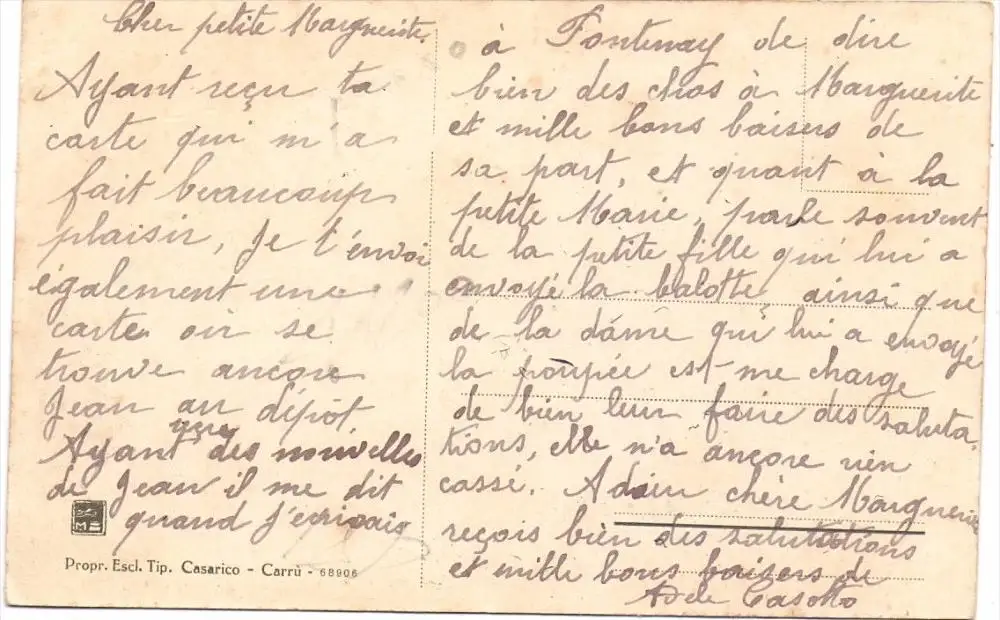 Cher petite Marguerite.
Ayant reçu ta
carte qui m'a
fait beaucoup
plaisir, je t'envoi
également une
carte oir se
trouve ancore
Jean au dépot
Ayant reçu des nouvelles
de Jean il me dit
quand j'ecrivais
à Fontenay de dire
bien des chos à Marguerite
et mille bons baisers de
sa part, et quant à la
petite Marie, parle souvent
de la petite fille qui lui a
envoyé la balotte ainsi que
de la dáme qui lui a envoyé
la poupée est me charge
de bien leur faire des saluta-
tions, elle n'a ancore rien
cassé. Adieu chère Marguerite
reçois bien des salutations
et mille bons baisers de
Adele Casotto
M
Propr. Escl. Tip. Casarico - Carrù - 68906